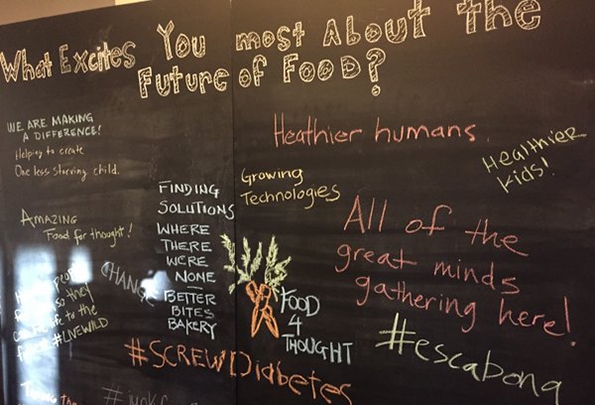 What Excites You most About the
Future of Food?
WE ARE MAKING
A DIFFERENCE!
Helping to create
One less starving child.
Heathier humans.
Healthier
Kids!
Growing
Technologies
FINDING
SOLUTIONS
WHERE
THERE
WERE
NONE
—
BETTER
BITES
BAKERY
AMAZING
Food for thought!
All of the
great minds
gathering here!
CHANGE
FOOD
4
THOUGHT
to the
#LIVEWILD
#escabona
#SCREWDiabetes
the